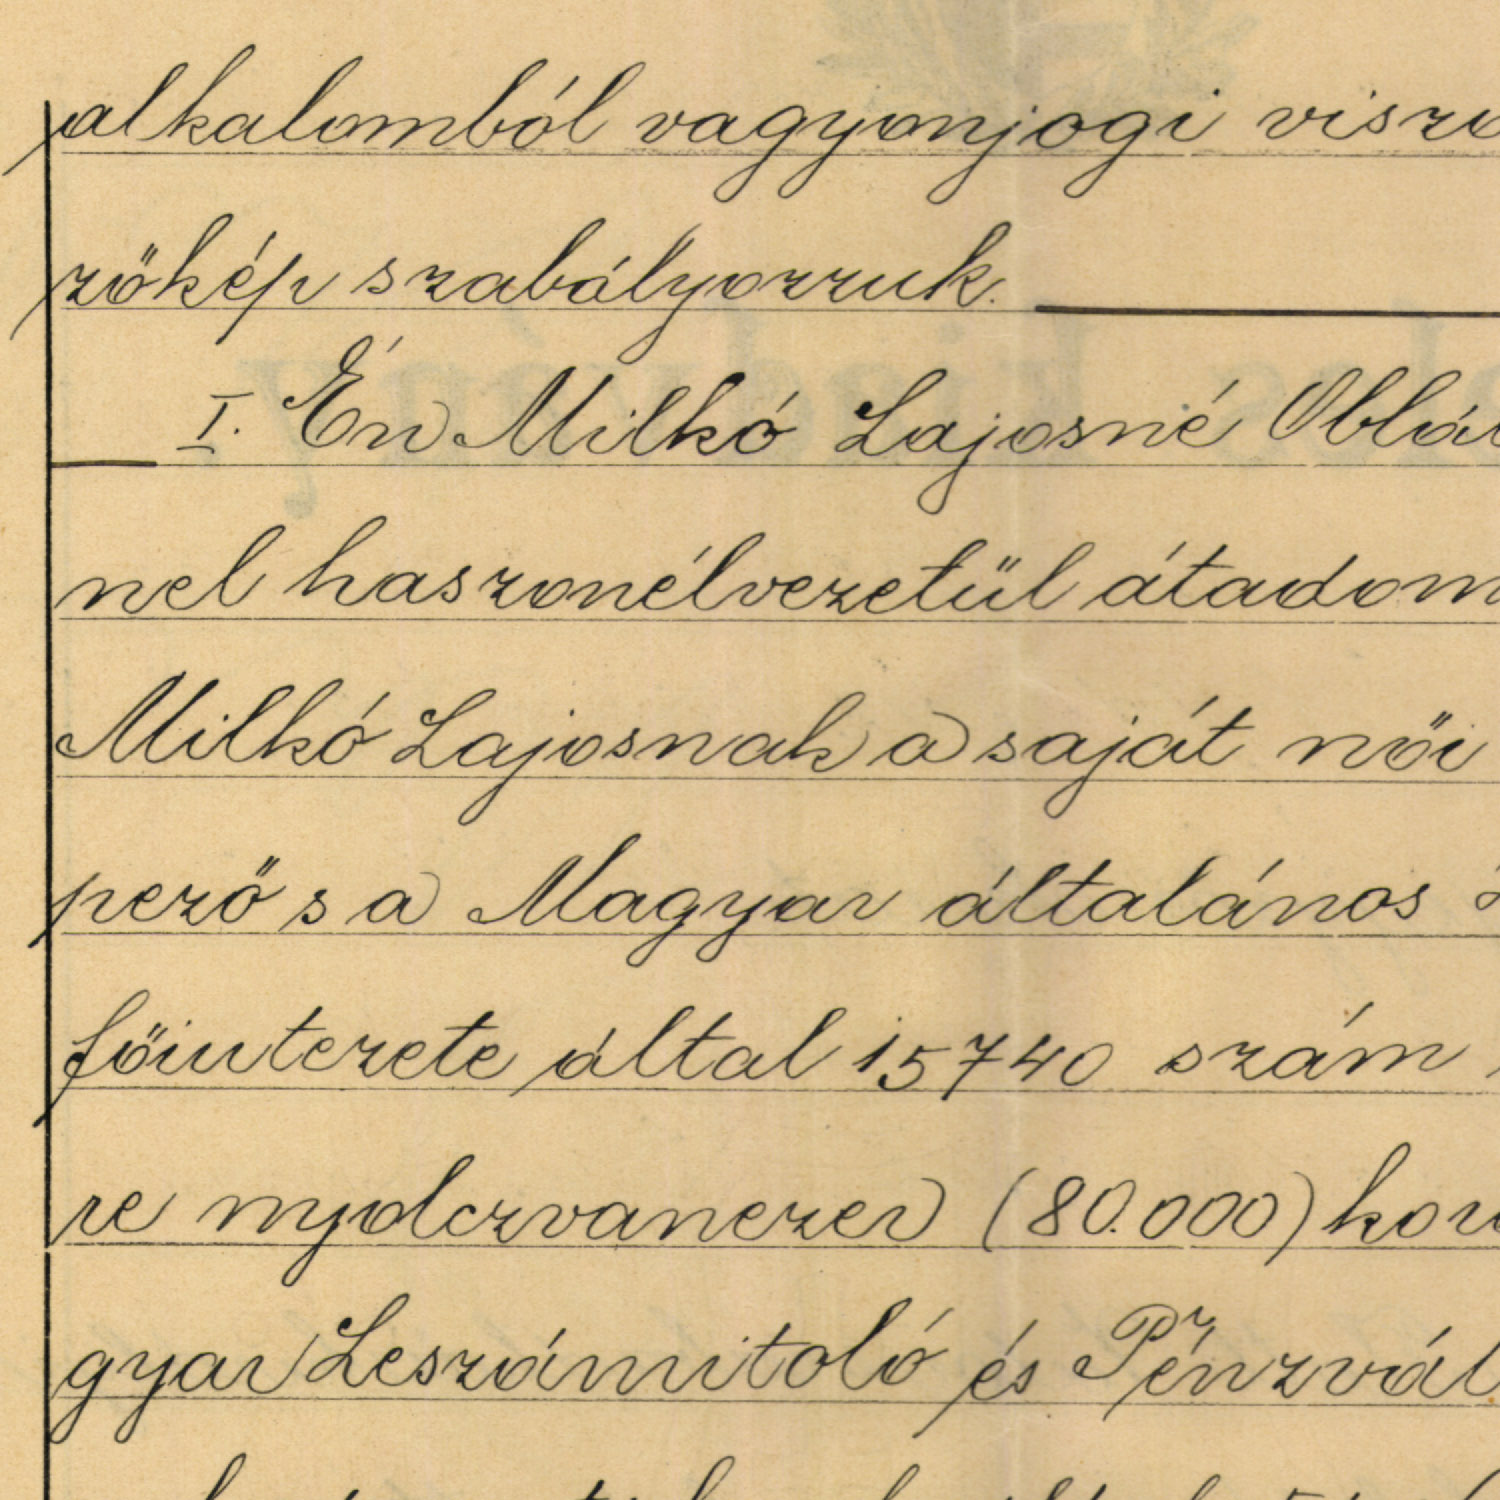 alkalomból vagyonjogi viszo
zőkép szabályozzuk.
I. Én Milkó Lajosné Oblá
nel haszonélvezetül átadom
Milkó Lajosnak a saját női
pező s a Magyar általános
főintezete által 15740 szám
re nyolczvanezer (80.000) kor
gyar Leszámitoló és Pénzvál